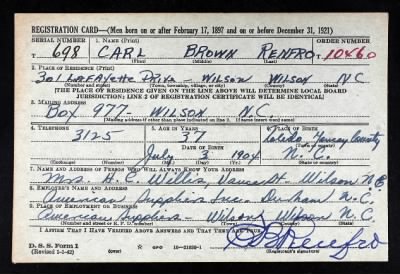 REGISTRATION CARD—(Men born on or after February 17, 1897 and on or before December 31, 1921)
SERIAL NUMBER 1. NAME (Print) ORDER NUMBER
T 698 CARL BROWN RENFRO 10460
(First) (Middle) (Last)
2. PLACE OF RESIDENCE (Print)
301 LaFayette Drive - Wilson Wilson N.C.
(Number and street) (Town, township, village, or city) (County) (State)
[THE PLACE OF RESIDENCE GIVEN ON THE LINE ABOVE WILL DETERMINE LOCAL BOARD
JURISDICTION; LINE 2 OF REGISTRATION CERTIFICATE WILL BE IDENTICAL]
3. MAILING ADDRESS
Box 977 - Wilson N.C.
[Mailing address if other than place indicated on line 2. If same insert word same]
4. TELEPHONE 5. AGE IN YEARS 6. PLACE OF BIRTH
3125 37 Yancey County
DATE OF BIRTH
July 3 1904 N.C.
(Exchange) (Number) (Mo.) (Day) (Yr.) (State or country)
7. NAME AND ADDRESS OF PERSON WHO WILL ALWAYS KNOW YOUR ADDRESS
Mrs. H.C. Willis Vance St - Wilson N.C.
8. EMPLOYER'S NAME AND ADDRESS
American Suppliers Inc. Durham N.C.
9. PLACE OF EMPLOYMENT OR BUSINESS
American Suppliers - Wilson Wilson N.C.
(Number and street or R. F. D. number) (Town) (County) (State)
I AFFIRM THAT I HAVE VERIFIED ABOVE ANSWERS AND THAT THEY ARE TRUE.
D. S. S. Form 1
(Revised 1-1-42) GPO 16—21630-1
C B Renfro